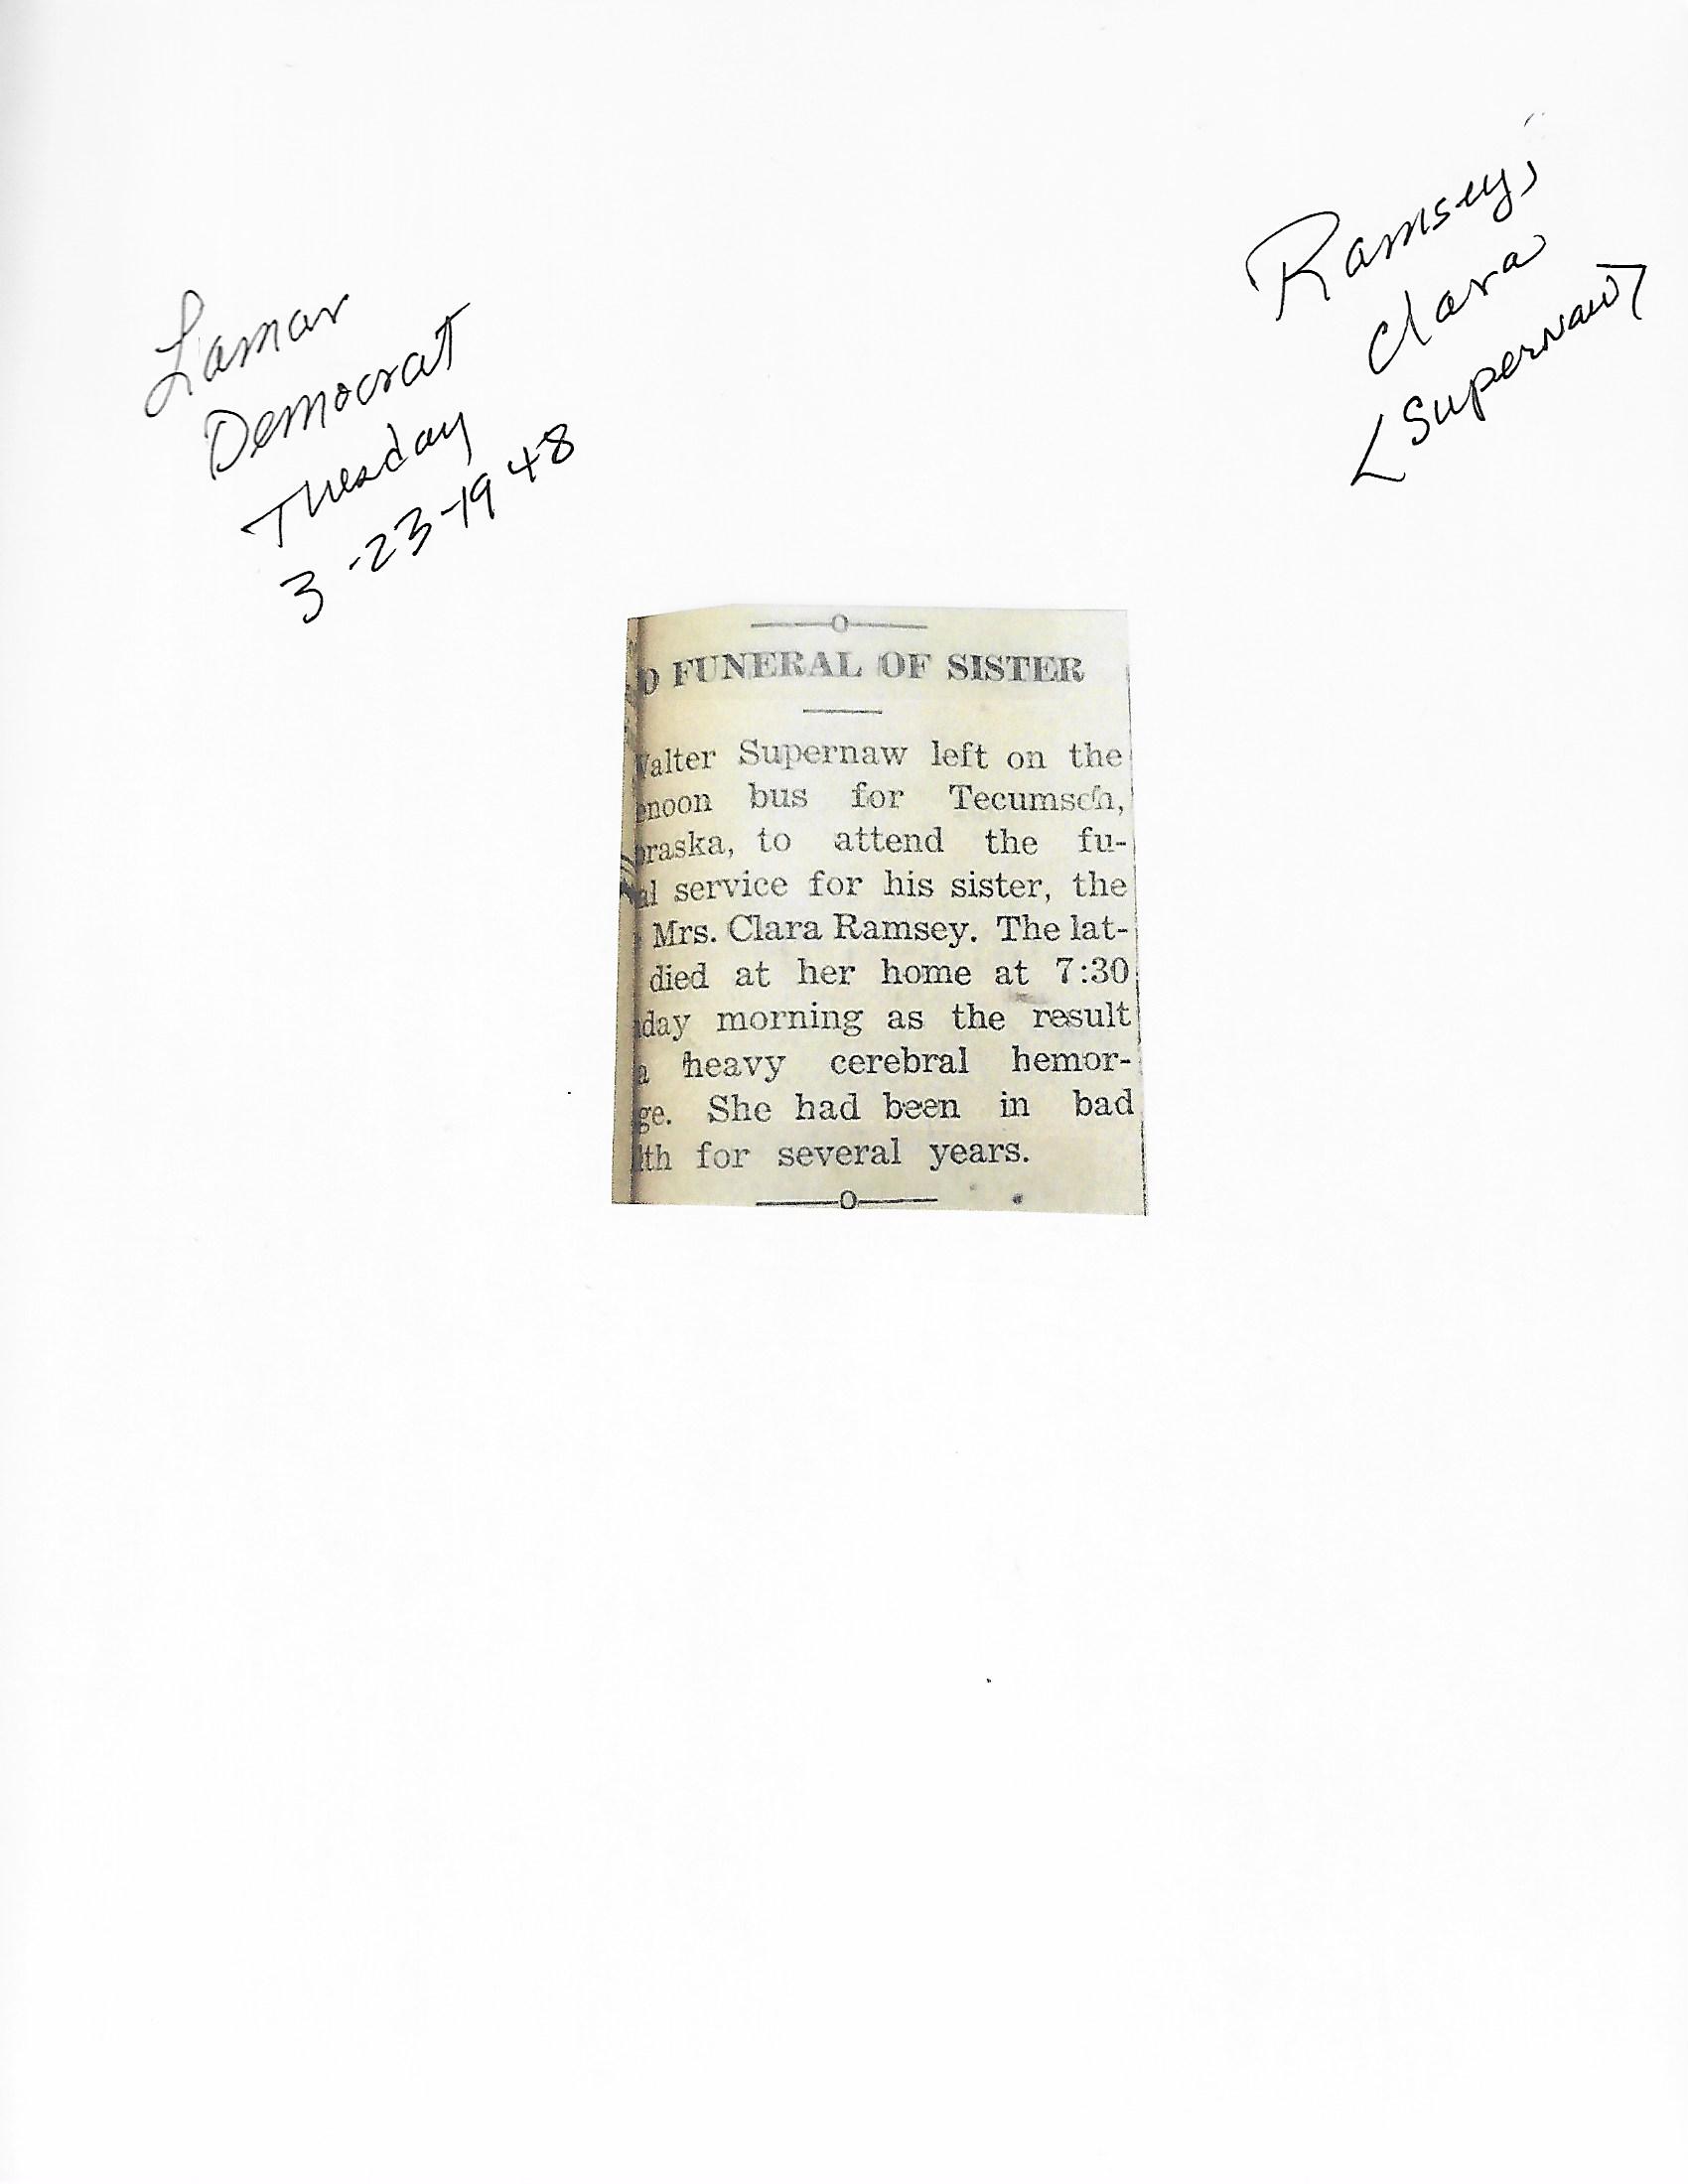 Lamar
Democrat
Tuesday
3-23-1948
Ramsey,
Clara
<Supernaw>
O FUNERAL OF SISTER
Walter Supernaw left on the
noon bus for Tecumseh,
braska, to attend the fu-
al service for his sister, the
Mrs. Clara Ramsey. The lat-
died at her home at 7:30
day morning as the result
a heavy cerebral hemor-
ge. She had been in bad
lth for several years.